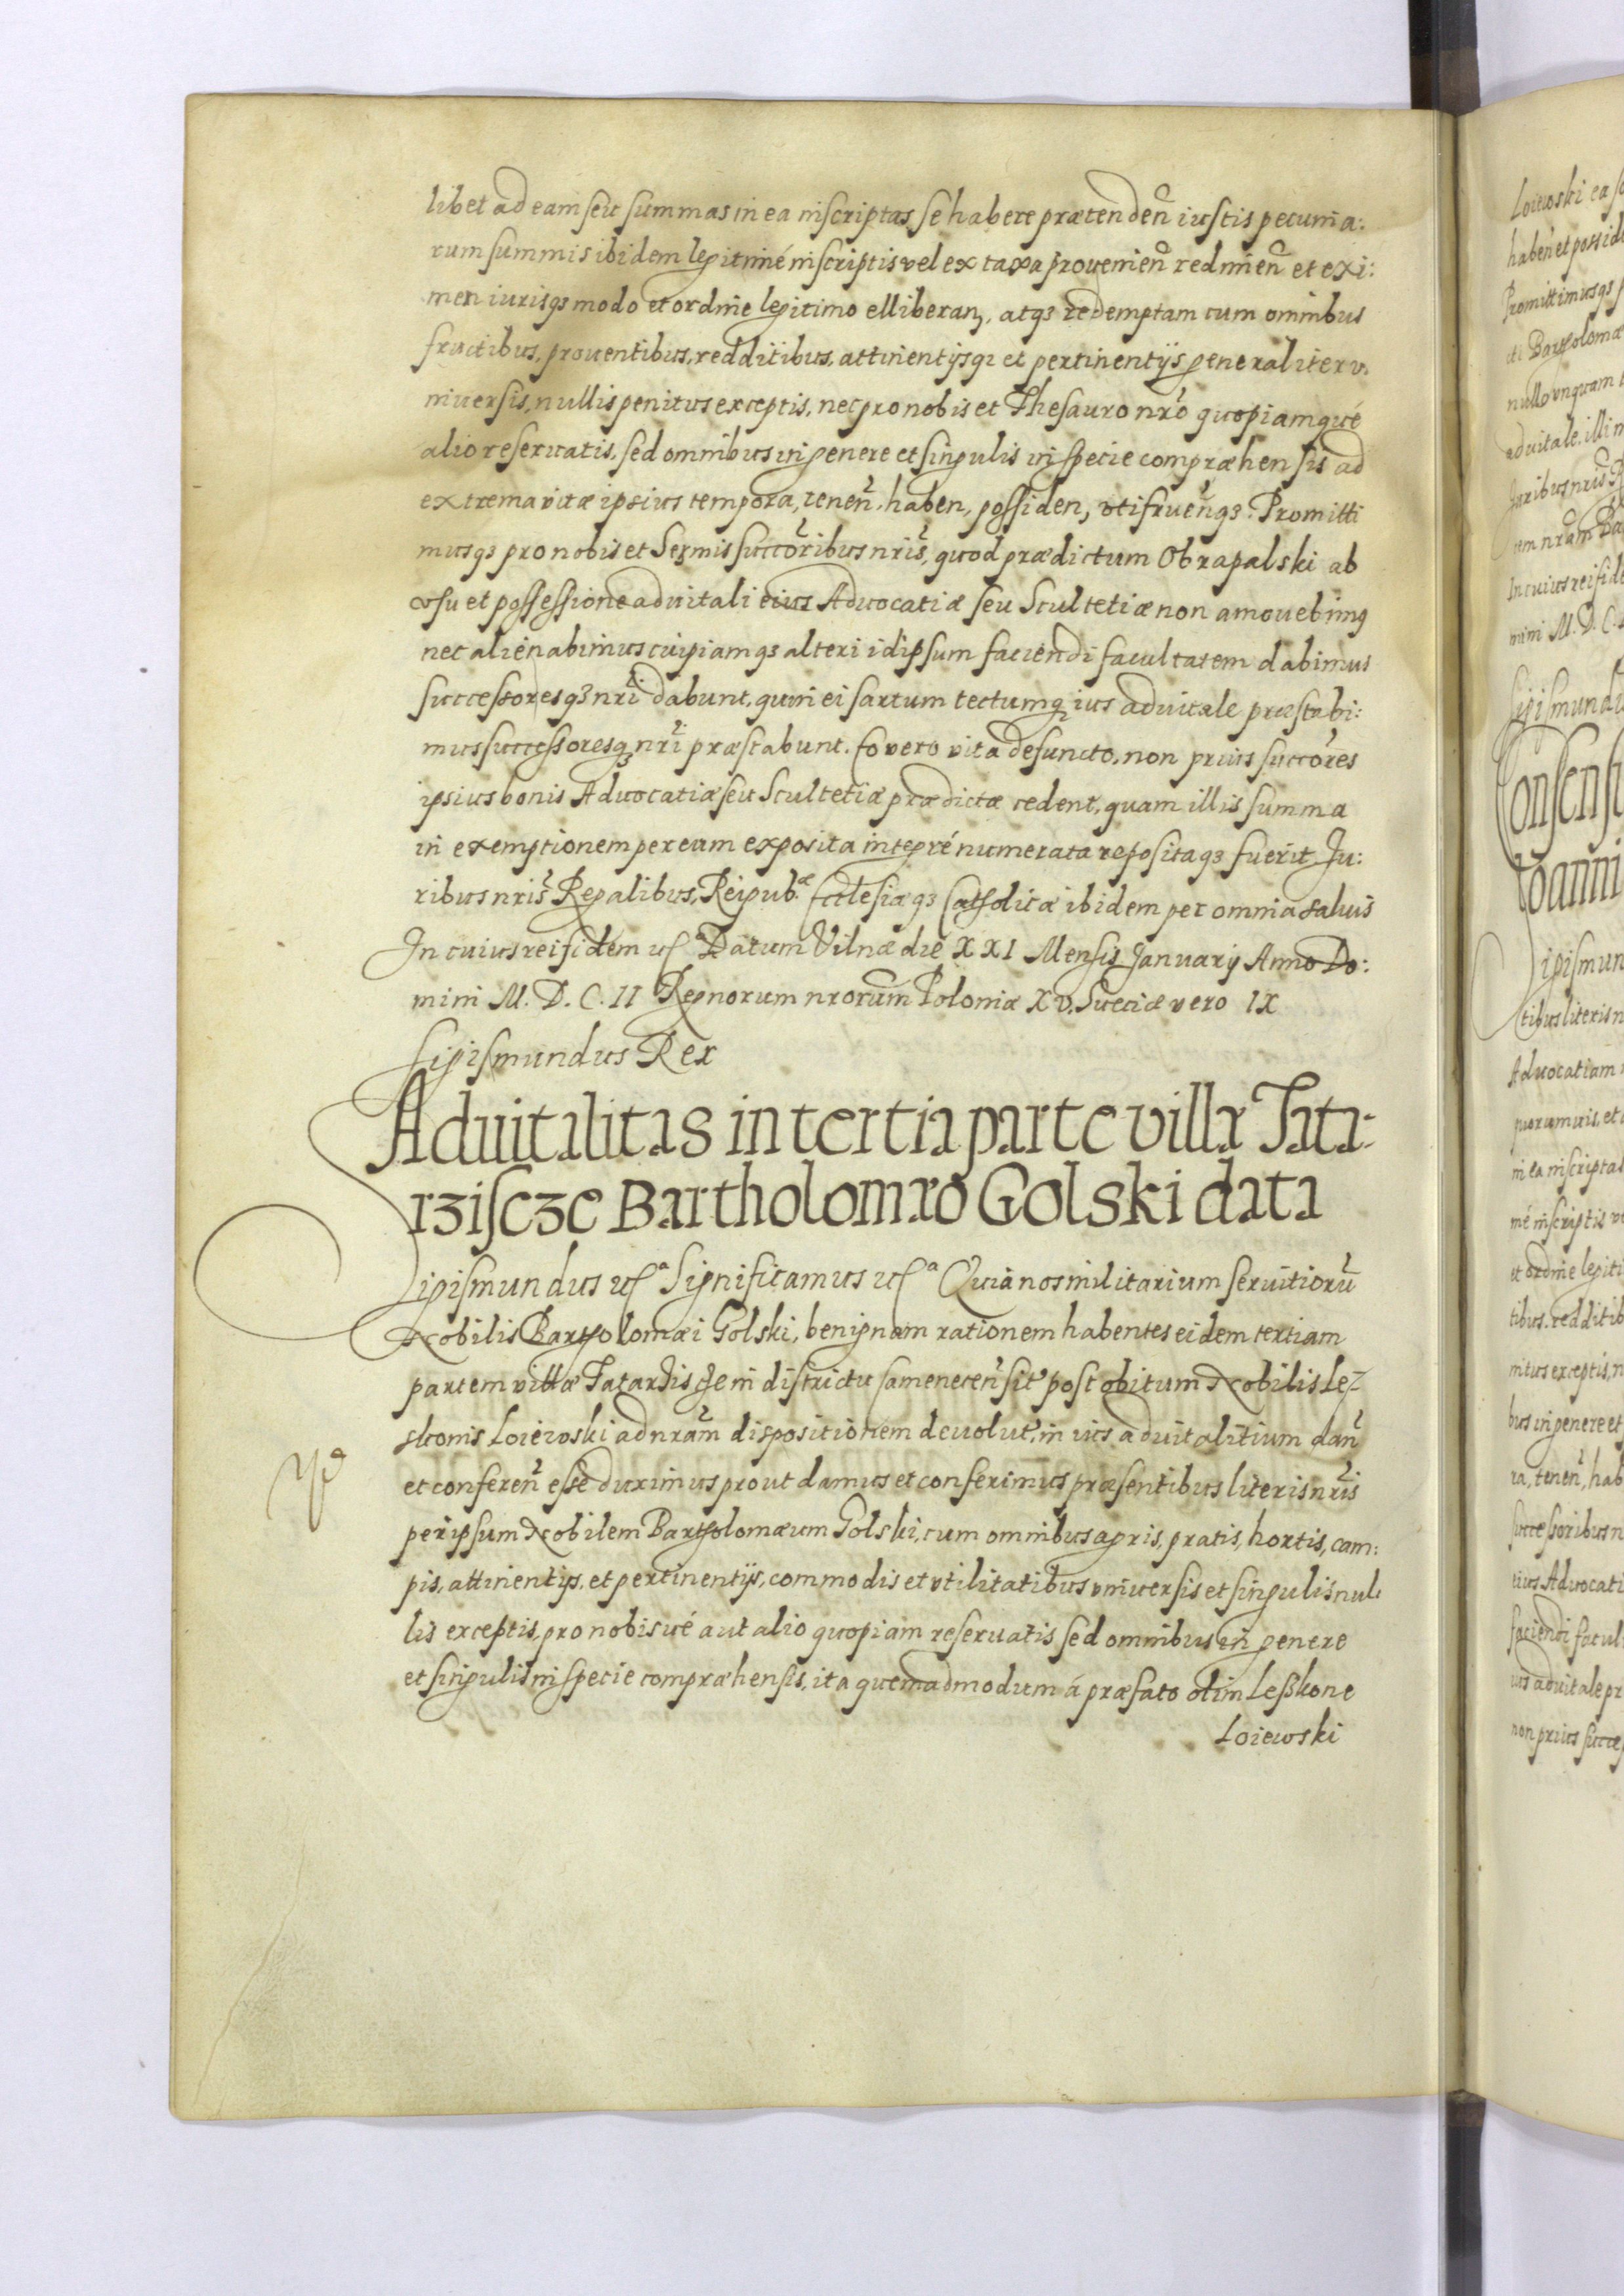 libet ad eam seu summas in ea inscriptas se habere prætendeñ iustis pecunia:
rum summis ibidem legitimé inscriptis vel ex taxa proveнieñ redimeñ et exi:
men iurisqз modo et ordine legitimo elliberanз, atqз redemptam cum omnibus
fructibus, proventibus, redditibus, attinentijsqз et pertinentijs generaliter v.
niversis, nullis penitus exceptis, nec pro nobis et Thesauro nr̃o quopiamqué
alio reservatis, sed omnibus in genere et singulis in specie compræhensis ad
extrema vitæ ipsius tempora, teneñ, haben, possiden, utifrueñqз. Promitti
musqз pro nobis et Seʒmis succõribus nr̃is, quod prædictum Obrapalski ab
usu et possessione advitali eius Advocatiæ seu Scultetiæ non amovebimꝰ
nec alienabimus cuipiamqз alteri id ipsum faciendi facultatem dabimus
successoresqз nr̃i dabunt, quin ei sartum tectumqз ius advitale præstabi:
mus successoresqз nr̃i præstabunt. Eo vero vita defuncto, non prius succõres
ipsius bonis Advocatiæ seu Scultetiæ prædictæ cedent, quam illis summa
in exemptionem per eum exposita integré numerata repositaqз fuerit. Ju:
ribus nr̃is Regalibus, Reipub.æ Ecclesiæqз Catholicæ ibidem per omnia salvis
In cuius rei fidem ucª Datum Vilnæ die XXI Mensis Januarij Anno Do:
mini M. D. C. II Regnorum nrorum Poloniæ XV. Sueciæ vero IX
Sigismundus Rex
Advitalitas in tertia parte villæ Tata-
rziscze Bartholomæo Golski data
Sigismundus ucª Significamus ucª Quia nos militarium servitiorũ
Nobilis Bartholomæi Golski, benignam rationem habentes eidem tertiam
partem villæ Tatarziscze in districtu Cameneceñ sit' post obitum Nobilis Le-
skonis Loiewski ad nr̃am dispositionem devolut', in ius advitalitium dañ
et confereñ esse duximus prout damus et conferimus præsentibus literis nr̃is
per ipsum Nobilem Bartholomæum Golski, cum omnibus agris, pratis, hortis, cam:
pis, attinentijs, et pertinentijs, commodis et utilitatibus universis et singulis nul:
lis exceptis, pro nobisvé aut alio quopiam reservatis sed omnibus in genere
et singulis in specie compræhensis, ita quemadmodum á præfato olim Leßkone
Loiewski